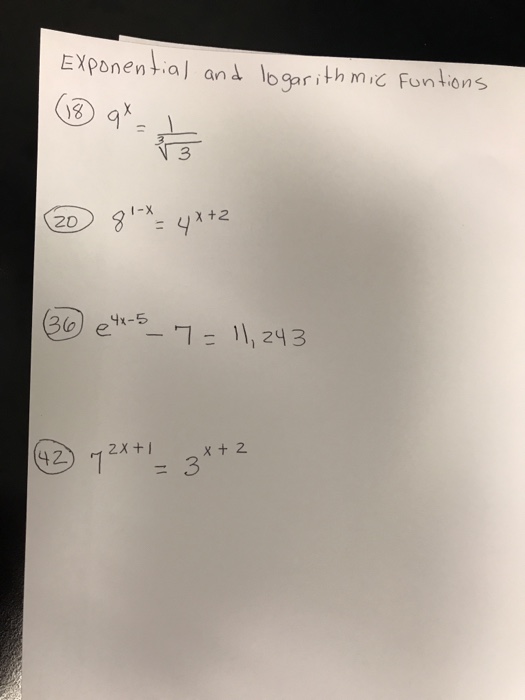 Exponential and logarithmic Funtions
(18) 9^x = 1/∛3
(20) 8^(1-x) = 4^(x+2)
(36) e^(4x-5) - 7 = 11,243
(42) 7^(2x+1) = 3^(x+2)